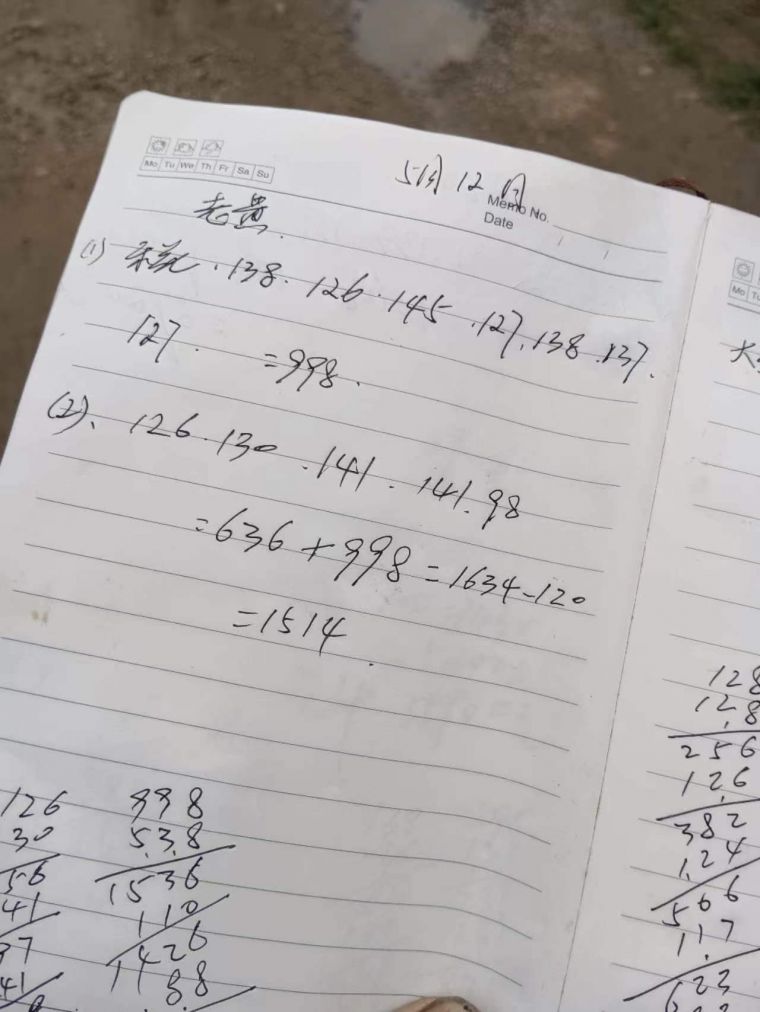 5月12日
Mo Tu We Th Fr Sa Su
Memo No.
Date
老黄.
(1) 138. 126. 145. 127. 138. 137.
127. =998.
(2)、126.130.141.141.98
=636+998=1634-120
=1514.
126
30
56
41
97
41
998
538
1536
110
1426
88
Mo Tu
大
128
128
256
126
382
124
506
117
623